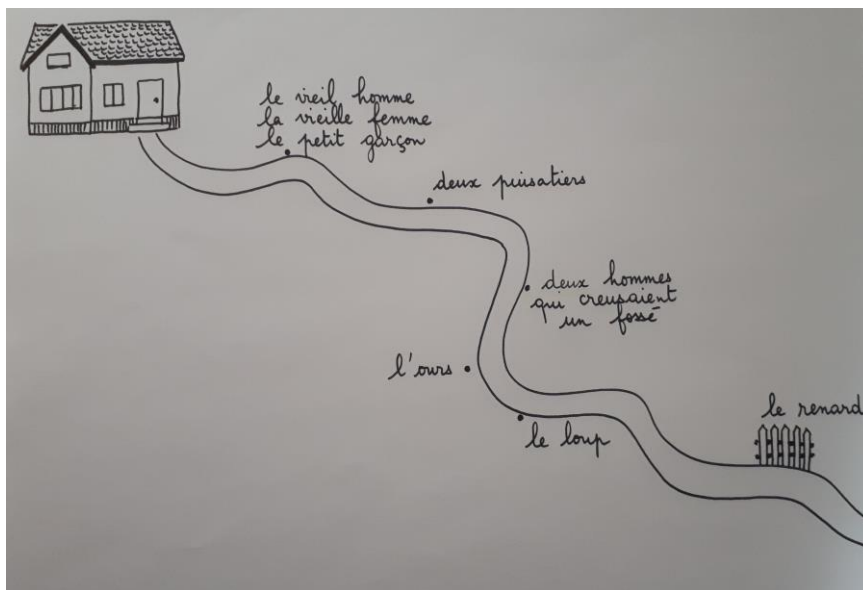 le vieil homme
la vieille femme
le petit garçon
deux puisatiers
deux hommes
qui creusaient
un fossé
l'ours
le loup
le renard